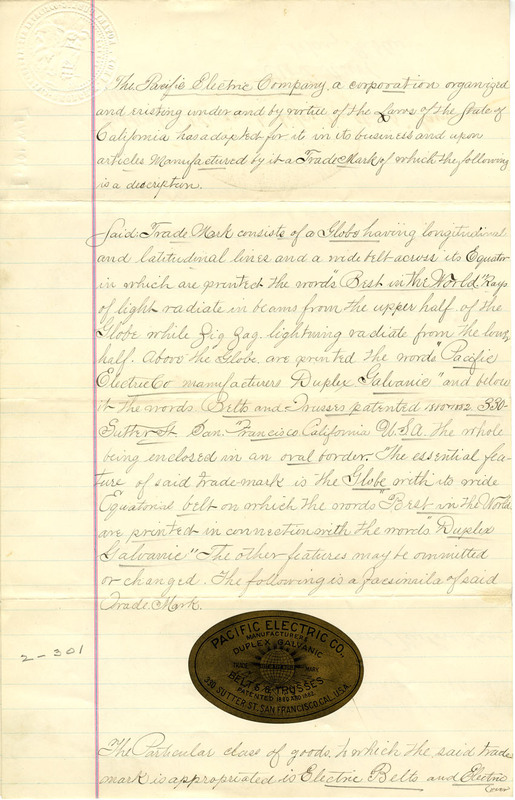 The Pacific Electric Company, a corporation organized
and existing under and by virtue of the Laws of the State of
California has adopted for it in its business and upon
articles Manufactured by it a Trade Mark of which the following
is a description.
Said Trade Mark consists of a Globe having longitudinal
and latitudinal lines and a wide belt across its Equator
in which are printed the words "Best in the World" Rays
of light radiate in beams from the upper half of the
Globe while Zig Zag lightning radiate from the lower
half. Above the Globe are printed the words "Pacific
Electric Co manufacturers Duplex Galvanic" and below
it the words Belts and Trusses patented 1880 & 1882 330
Sutter St. San. Francisco California U.S.A. the whole
being enclosed in an oval border. The essential fea-
ture of said trade mark is the Globe with its wide
Equatorial belt on which the words "Best in the World
are printed in connection with the words "Duplex
Galvanic" The other features may be ommitted
or changed. The following is a facsimila of said
Trade Mark.
2-301
PACIFIC ELECTRIC CO.,
MANUFACTURERS
DUPLEX GALVANIC
TRADE MARK
BELTS & TRUSSES
PATENTED 1880 AND 1882.
330 SUTTER ST. SAN FRANCISCO, CAL., USA.
The Particular class of goods to which the said trade
mark is appropriated is Electric Belts and Electric
Over